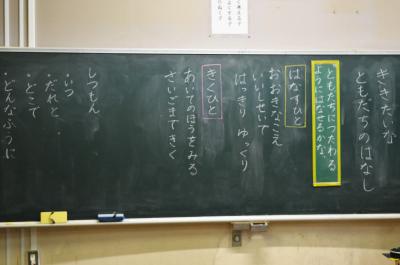 ききたいな
ともだちのはなし
ともだちにつたわる
ようにはなせるかな
はなすひと
おおきなこえ
いいしせいで
はっきり ゆっくり
きくひと
あいてのほうをみる
さいごまできく
しつもん
・いつ
・だれと
・どこで
・どんなふうに